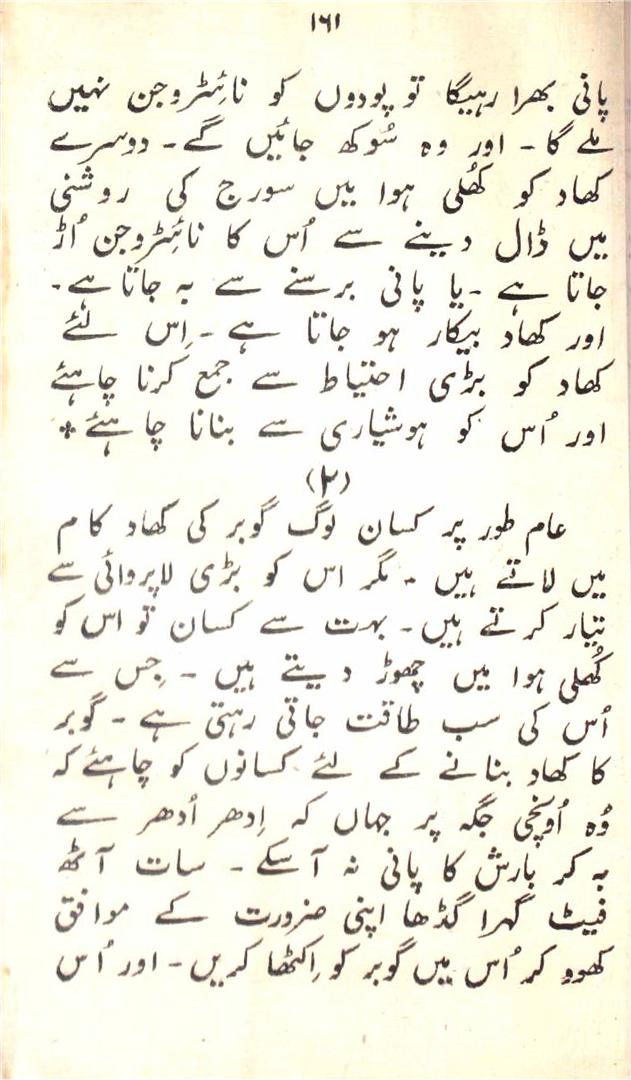 ۱۶۱
پانی بھرا رہیگا تو پودوں کو نائٹروجن نہیں
ملے گا۔ اور وہ سُوکھ جائیں گے۔ دوسرے
کھاد کو کھُلی ہوا میں سورج کی روشنی
میں ڈال دینے سے اُس کا نائٹروجن اُڑ
جاتا ہے۔ یا پانی برسنے سے بہ جاتا ہے۔
اور کھاد بیکار ہو جاتا ہے۔ اِس لئے
کھاد کو بڑی احتیاط سے جمع کرنا چاہئے
اور اُس کو ہوشیاری سے بنانا چاہئے *
(۲)
عام طور پر کسان لوگ گوبر کی کھاد کام
میں لاتے ہیں۔ مگر اس کو بڑی لاپروائی سے
تیار کرتے ہیں۔ بہت سے کسان تو اس کو
کُھلی ہوا میں چھوڑ دیتے ہیں۔ جِس سے
اُس کی سب طاقت جاتی رہتی ہے۔ گوبر
کا کھاد بنانے کے لئے کسانوں کو چاہئے کہ
وُہ اُونچی جگہ پر جہاں کہ اِدھر اُدھر سے
بہ کر بارش کا پانی نہ آسکے۔ سات آٹھ
فیٹ گہرا گڈھا اپنی ضرورت کے موافق
کھود کر اُس میں گوبر کو اِکٹھا کریں۔ اور اُس